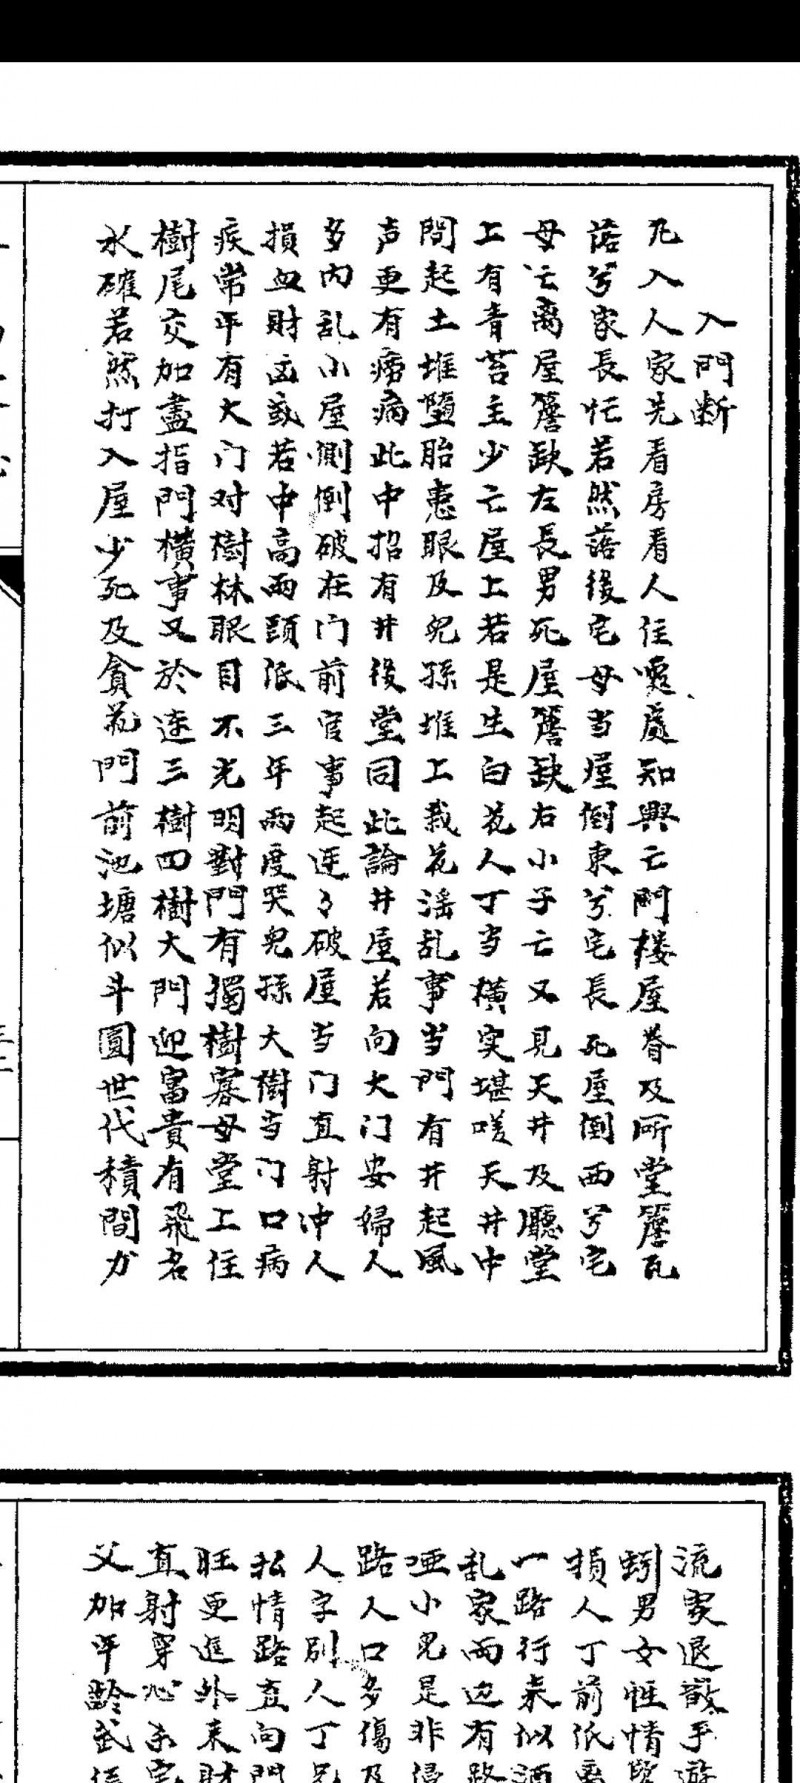 入門断
凡入人家先看房看人住處處知興亡門楼屋脊及所堂簷瓦
落兮家長忙若然落後宅母当屋倒東兮宅長死屋倒西兮宅
母亡离屋簷缺左長男死屋簷缺右小子亡又見天井及廳堂
上有青苔主少亡屋上若是生白花人丁当横实堪嘆天井中
間起土堆墮胎患眼及兒孫堆上栽花滛乱事当門有井起風
声更有痨病此中招有井後堂同此論井屋若向大门安婦人
多内乱小屋側倒破在门前官事起连々破屋当门直射冲人
損血財凶或若中高兩頭低三年兩度哭兒孫大樹当门口病
疾常年有大门对樹林眼目不光明對門有獨樹寡母堂上住
樹尾交加盡指門橫事又於连三樹四樹大門迎富貴有飛名
水碓若然打入屋少死及貪花門前池塘似斗圓世代積間力
流家退散手遊
蚓男女性情
損人丁前低离
一路行来似酒
乱家两边有路
哑小兒是非侵
路人口多傷及
人字别人丁兄
私情路直向門
旺更進外来財
直射穿心系宅
父加年齡武